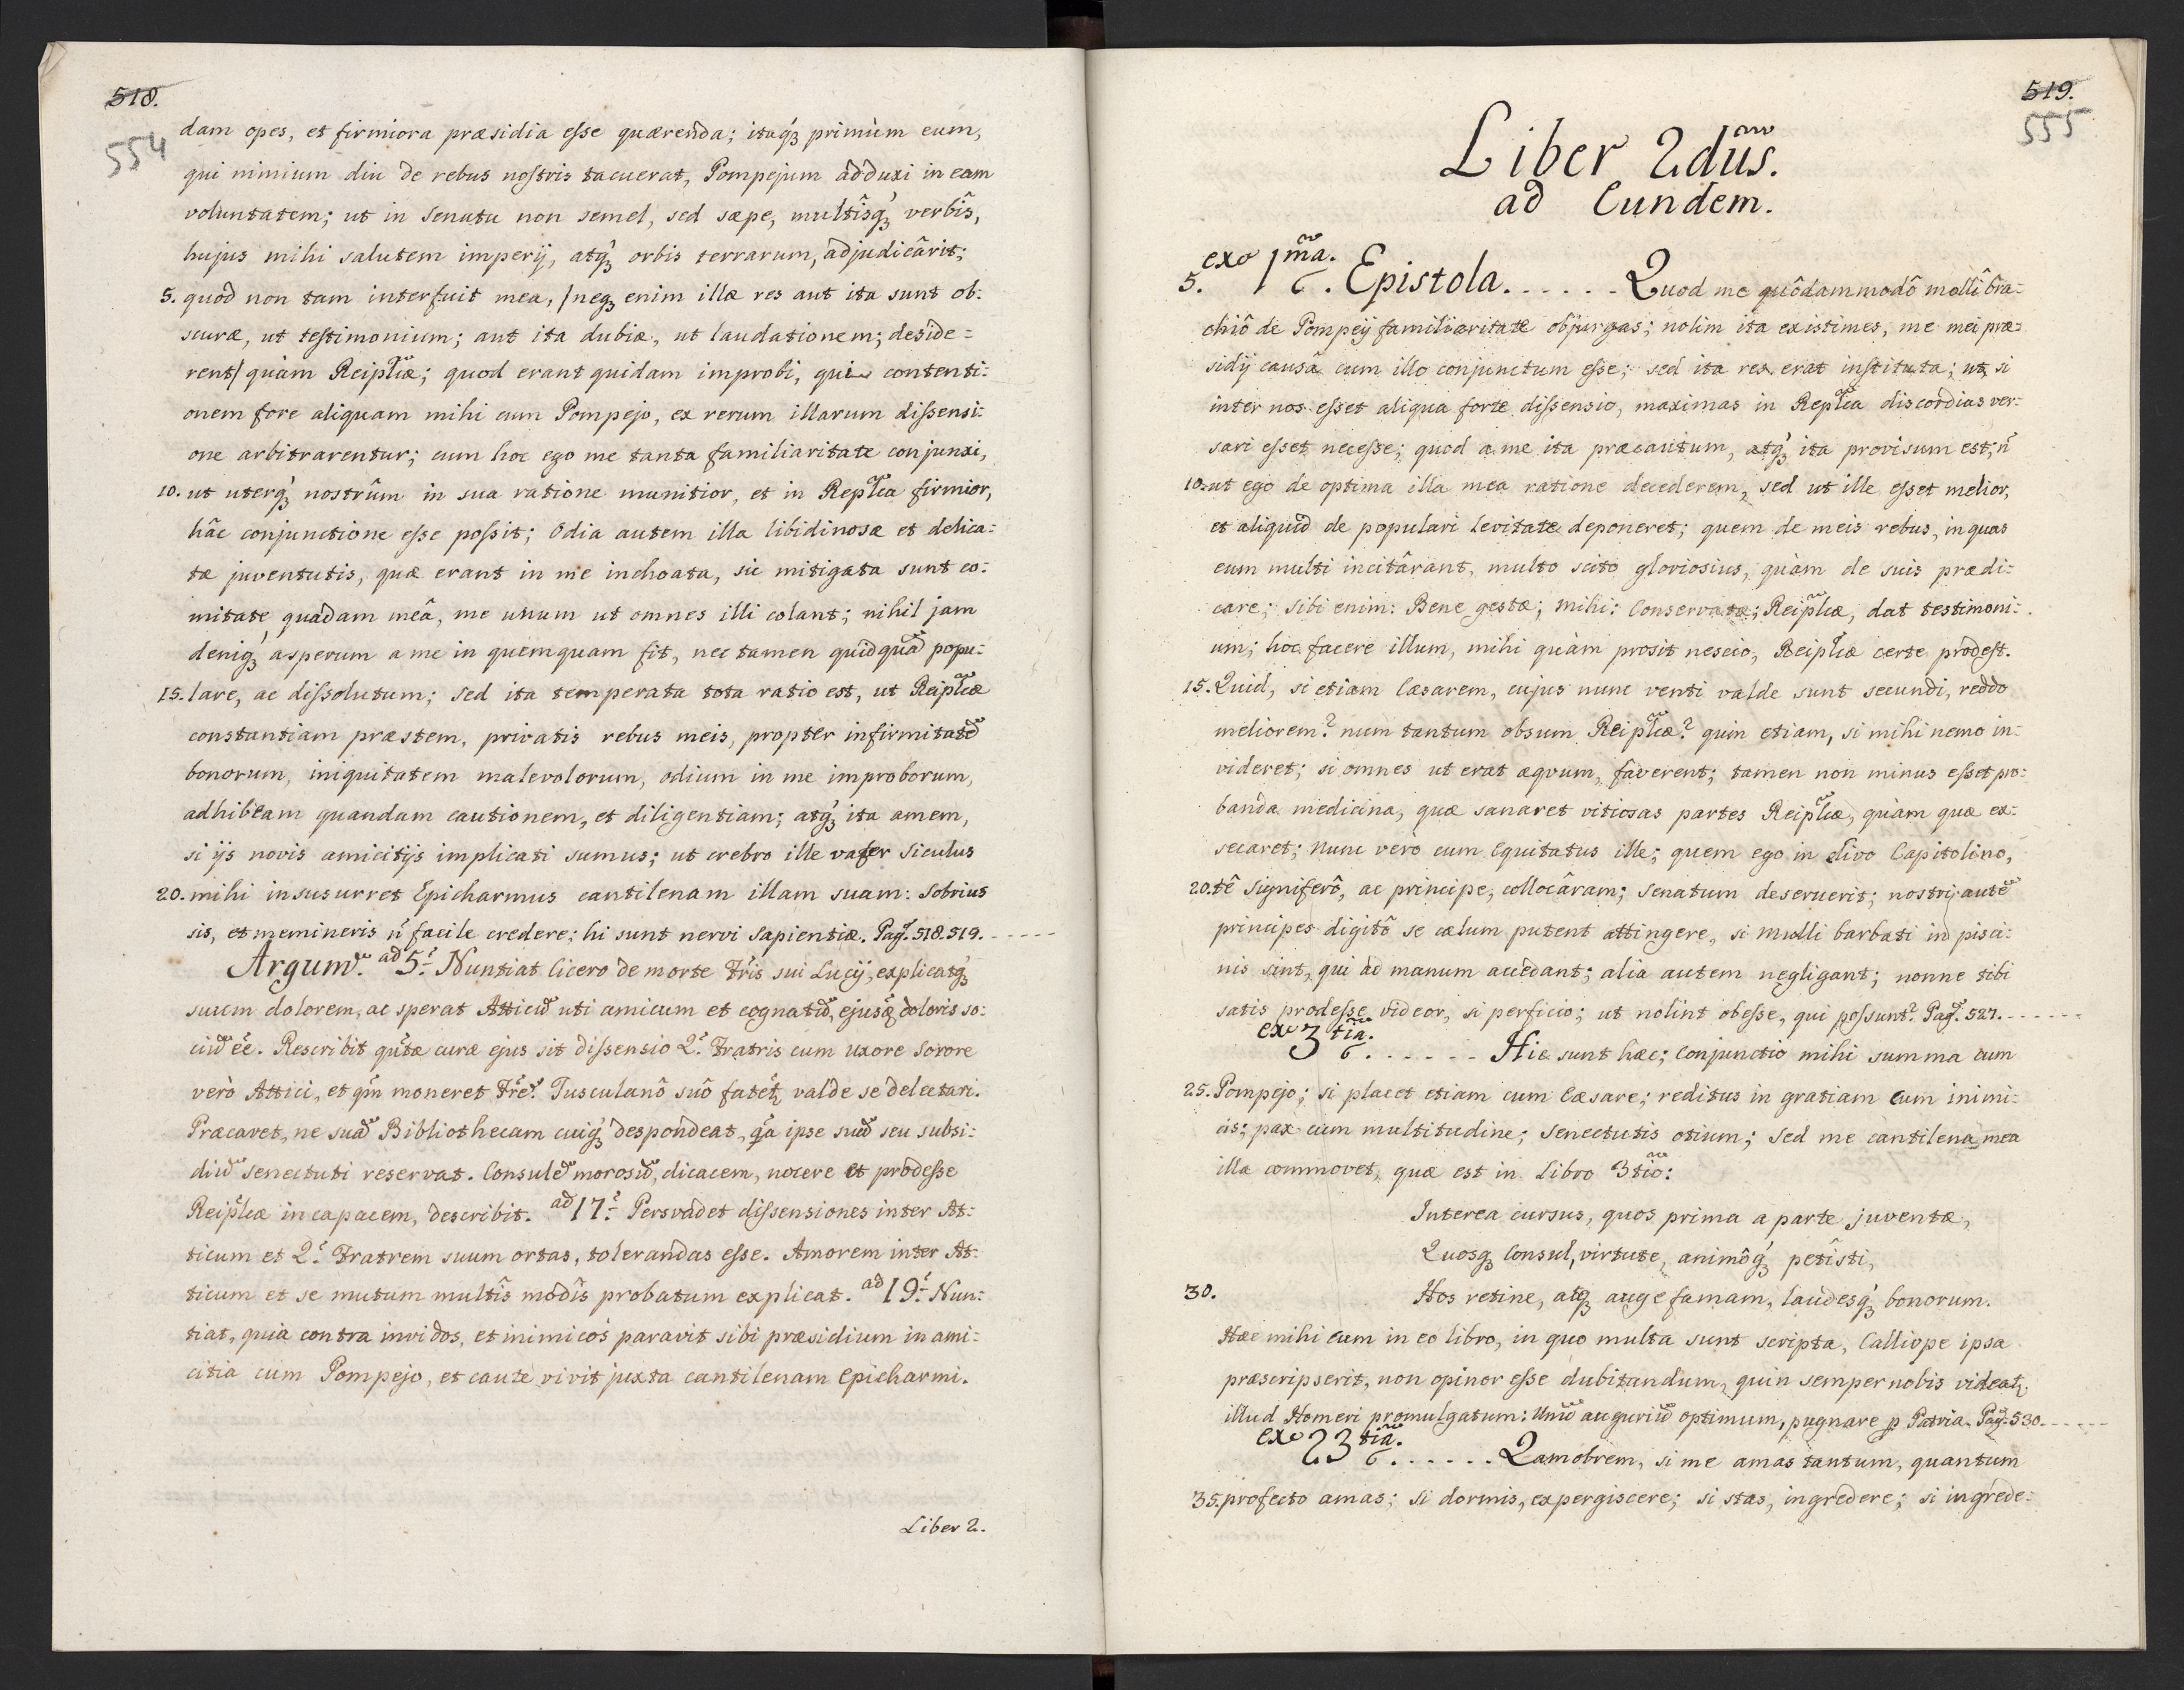 518.
554
dam opes, et firmiora præsidia esse quærenda; itaqꝫ́ primùm eum,
qui nimium diu de rebus nostris tacuerat, Pompejum adduxi in eam
voluntatem; ut in Senatu non semel, sed sæpe, multîsqꝫ́ verbîs,
hujus mihi salutem imperij, atqꝫ́ orbis terrarum, adjudicârit;
5. quod non tam interfuit mea, /neqꝫ enim illæ res aut ita sunt ob:
scuræ, ut testimonium; aut ita dubiæ, ut laudationem; deside=
rent/ quàm Reiplicæ; quod erant quidam improbi, qui contenti:
onem fore aliquam mihi cum Pompejo, ex rerum illarum dissensi:
one arbitrarentur; cum hoc ego me tanta familiaritate conjunxi,
10. ut uterqꝫ́ nostrûm in sua ratione munitior, et in Replica firmior,
hâc conjunctione esse possit; Odia autem illa libidinosæ et delica:
tæ juventutis, quæ erant in me inchoata, sic mitigata sunt co:
mitate quâdam meâ, me unum ut omnes illi colant; nihil jam
deniqꝫ́ asperum a me in quemquam fit, nec tamen quidquã popu:
15. lare, ac dissolutum; sed ita temperata tota ratio est, ut Reiplicæ
constantiam præstem, privatis rebus meis, propter infirmitatẽ
bonorum, iniquitatem malevolorum, odium in me improborum,
adhibeam quandam cautionem, et diligentiam; atqꝫ́ ita amem,
si ijs novis amicitijs implicati sumus; ut crebro ille vafer Siculus
20. mihi insusurret Epicharmus cantilenam illam suam: Sobrius
sis, et memineris ñ facile credere; hi sunt nervi Sapientiæ. Pag. 518. 519. -----
Argum. ad 5. Nuntiat Cicero de morte Fris sui Lucij, explicatqꝫ́
suum dolorem, ac sperat Atticũ uti amicum et cognatũ, ejusqꝫ doloris so:
ciũ eẽ. Rescribit qũtæ curæ ejus sit dissensio Q. Fratris cum uxore Sorore
verò Attici, et qm̃ moneret Fre. Tusculanô suô fatet, valde se delectari.
Præcavet, ne suã Bibliothecam cuiqꝫ́ despondeat, qa ipse suũ seu subsi:
diũ senectuti reservat. Consulẽ morosũ, dicacem, nocere et prodesse
Reiplicæ incapacem, describit. ad 17. Persvadet dissensiones inter At:
ticum et Q. Fratrem suum ortas, tolerandas esse. Amorem inter At:
ticum et se mutum multîs modîs probatum explicat. ad 19. Nun:
tiat, quia contra invidos, et inimicos paravit sibi præsidium in ami:
citia cum Pompejo, et caute vivit juxta cantilenam Epicharmi.
Liber 2.
519.
555
Liber 2dus.
ad Eundem.
ex 1ma.
5. Epistola. . . . . . Quod me quôdammodô mollî bra:
chiô de Pompeij familiaritate objurgas; nolim ita existimes, me mei præ:
sidij causâ cum illo conjunctum esse; sed ita res erat instituta; ut, si
inter nos esset aliqua forte dissensio, maximas in Replica discordias ver:
sari esset necesse; quod a me ita præcautum, atqꝫ́ ita provisum est; ñ
10. ut ego de optima illa mea ratione decederem, sed ut ille esset melior,
et aliquid de populari levitate deponeret; quem de meis rebus, in quas
eum multi incitârant, multo scito gloriosius, quàm de suis prædi:
care; sibi enim: Bene gestæ; mihi: Conservatæ; Reiplicæ, dat testimoni:
um; hoc facere illum, mihi quàm prosit nescio, Reiplicæ certe prodest.
15. Quid, si etiam Cæsarem, cujus nunc venti valde sunt secundi, reddo
meliorem? num tantum obsum Reiplicæ? quin etiam, si mihi nemo in:
videret; si omnes ut erat æqvum, faverent; tamen non minus esset pro:
banda medicina, quæ sanaret vitiosas partes Reiplicæ, quàm quæ ex:
secaret; Nunc verò cum Equitatus ille; quem ego in clivo Capitolino,
20. tê signiferô, ac principe, collocâram; Senatum deseruerit; nostri autẽ
principes digitô se cælum putent attingere, si mulli barbati in pisci:
nis sint, qui ad manum accedant; alia autem negligant; nonne tibi
satis prodesse videor, si perficio; ut nolint obesse, qui possunt? Pag. 527. ------
ex 3tia. . . . . . . Hic sunt hæc; Conjunctio mihi summa cum
25. Pompejo; si placet etiam cum Cæsare; reditus in gratiam cum inimi:
cis; pax cum multitudine; Senectutis otium; Sed me cantilena mea
illa commovet, quæ est in Libro 3tio:
Interea cursus, quos prima a parte juventæ,
Quosqꝫ Consul, virtute, animôqꝫ́ petîsti,
30. Hos retine, atqꝫ auge famam, laudesqꝫ́ bonorum.
Hæc mihi cum in eo libro, in quo multa sunt scripta, Calliope ipsa
præscripserit, non opinor esse dubitandum, quin semper nobis videat,
illud Homeri promulgatum: Unũ auguriũ optimum, pugnare ꝓ Patria. Pag. 530. -----
ex 23tia. . . . . . Qamobrem, si me amas tantum, quantum
35. profecto amas; si dormis, expergiscere; si stas, ingredere; si ingrede: